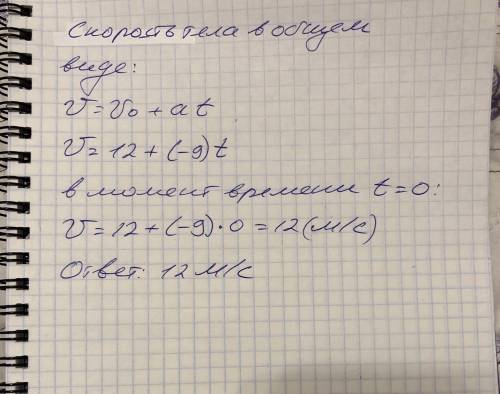 Скорость тела в общем
виде:
v = v₀ + at
v = 12 + (-9)t
в момент времени t=0:
v = 12 + (-9)·0 = 12(м/с)
Ответ: 12 м/с